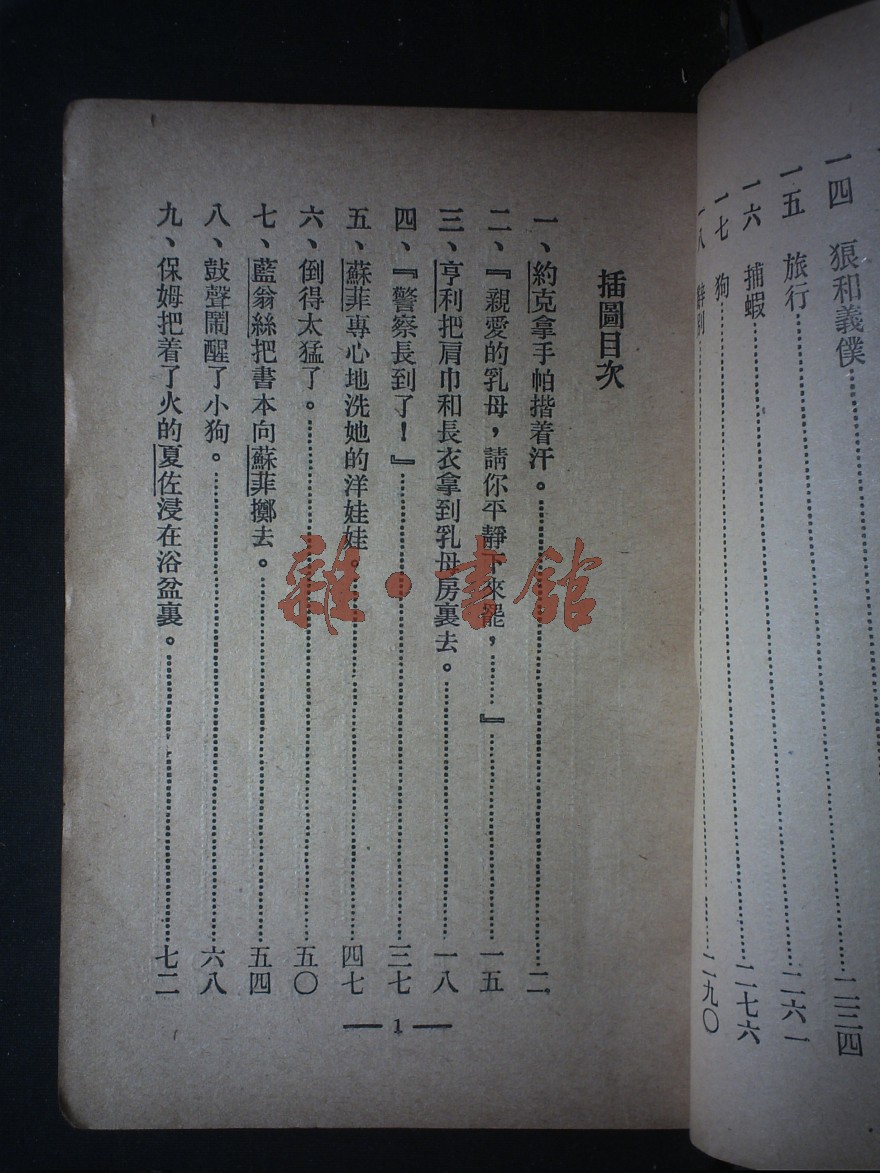 一四 狼和義僕……二三四
一五 旅行……二六一
一六 捕蝦……二七六
一七 狗……二九〇
一八
插圖目次
一、約克拿手帕揩着汗。……二
二、『親愛的乳母，請你平靜下來罷，……』……一五
三、亨利把肩巾和長衣拿到乳母房裏去。……一八
四、『警察長到了！』……三七
五、蘇菲專心地洗她的洋娃娃。……四七
六、倒得太猛了。……五〇
七、藍翁絲把書本向蘇菲擲去。……五四
八、鼓聲鬧醒了小狗。……六八
九、保姆把着了火的夏佐浸在浴盆裏。……七二
— 1 —
雜·書館